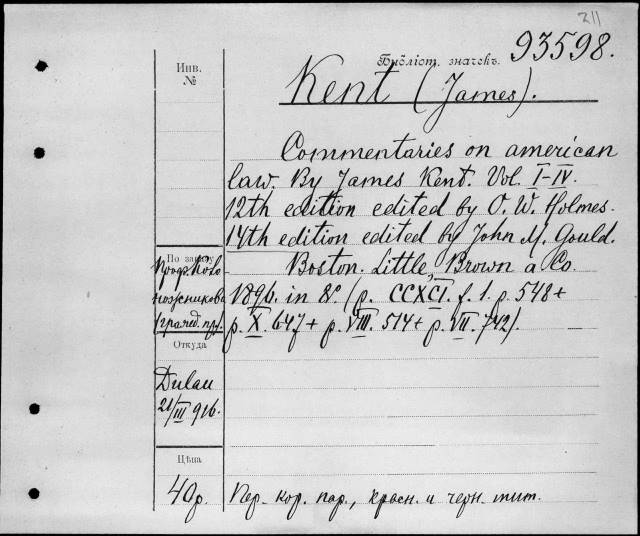 211
Библіот. значекъ. 93598.
Инв.
№
Kent (James).
Commentaries on american
law. By James Kent. Vol. I-IV.
12th edition edited by O. W. Holmes.
14th edition edited by John M. Gould.
Boston. Little, Brown a Co.
1896. in 8º. (p. CCXCI. f. 1. p. 548 +
p. X. 647 + p. VIII. 514 + p. VII. 742).
По заказу
Проф. Кожев
(гражд. пр.)
Откуда
Dulau
21/III 916.
Цѣна
40 р.
Пер. кор. пар., красн. и черн. тит.